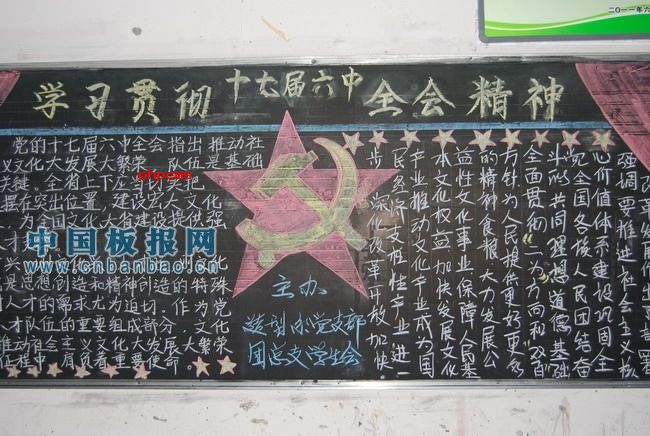 二〇一一年六
学习贯彻十七届六中全会精神
党的十七届六中全会指出推动社
义文化大发展大繁荣,队伍是基础
关键。全省上下应当切实把
摆在突出位置,建设宏大文化
为全国文化大省建设提供强
人才
是思想创造和精神创造的特殊
人才的需求尤为迫切。作为党
人才队伍的重要组成部分,文化
推动社会主义文化大发展大繁荣
征程中肩负着重要使命。
中国板报网
www.cnbanbao.cn
主办
造型小学党支部
团总支学生会
强调要推进社会主义核
心价值体系建设巩固全
党全国各族人民团结奋
斗的共同理想道德基础
全面贯彻"二为"方向和"双百"
方针为人民提供更好更多
的精神食粮,大力发展公
益性文化事业保障人民基
本文化权益加快发展文化
产业推动文化产业成为国
民经济支柱性产业进一
步深化改革开放加快